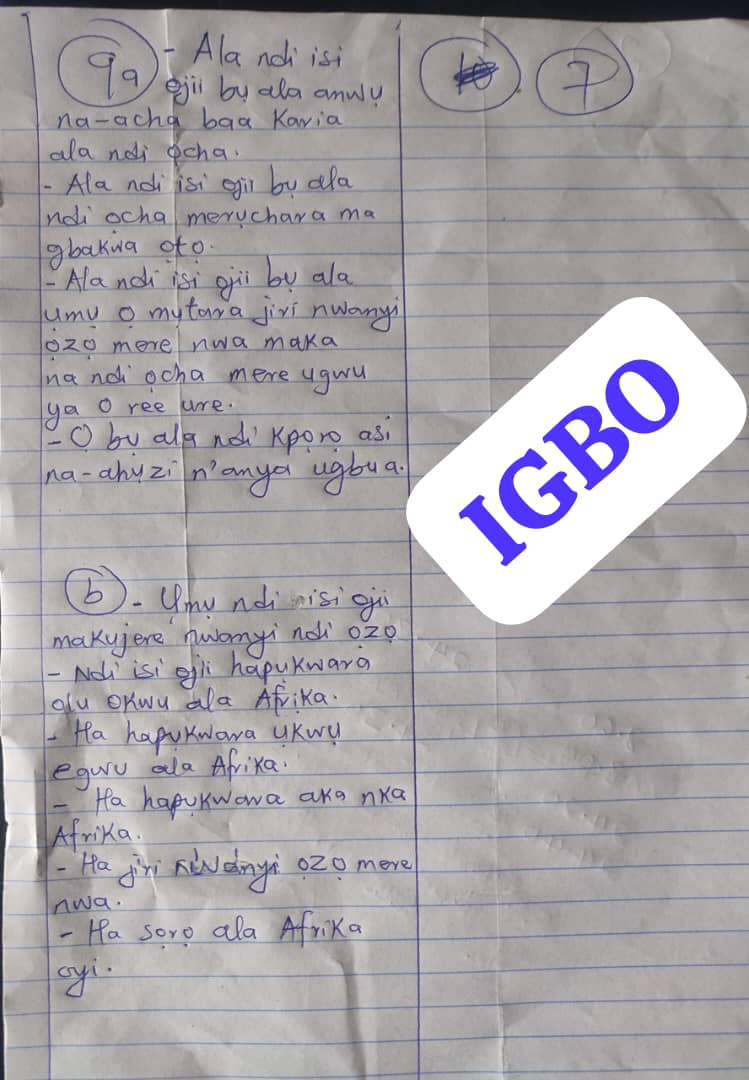 9a - Ala ndi isi
ojii bụ ala anwụ
na-acha baa Karia
ala ndi ọcha.
- Ala ndi isi ojii bụ ala
ndi ocha merụchara ma
gbakwa ọtọ.
- Ala ndi isi ojii bụ ala
ụmụ o mụtara jiri nwanyi
ọzọ mere nwa maka
na ndi ọcha mere ugwu
ya o ree ure.
- Ọ bụ ala ndi Kpọrọ asi
na-ahụzi n'anya ugbua.
b - Ụmụ ndi isi ojii
makụjere nwanyi ndi ọzọ
- Ndi isi ojii hapụkwara
olu okwu ala Afrika.
- Ha hapụkwara ụkwụ
egwu ala Afrika.
- Ha hapụkwara aka nka
Afrika.
- Ha jiri nwanyi ọzọ mere
nwa.
- Ha sọrọ ala Afrika
oyi.
7
IGBO